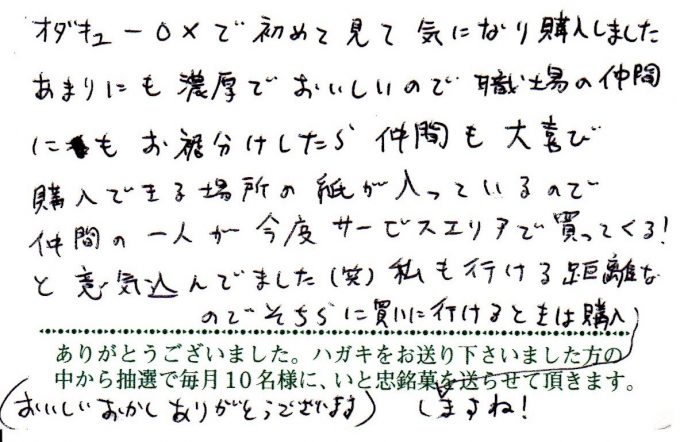 オダキューOXで初めて見て気になり購入しました
あまりにも濃厚でおいしいので職場の仲間
にもお裾分けしたら仲間も大喜び
購入できる場所の紙が入っているので
仲間の一人が今度サービスエリアで買ってくる!
と意気込んでました(笑)私も行ける距離な
のでそちらに買いに行けるときは購入
しますね!
(おいしいおかしありがとうございます)
ありがとうございました。ハガキをお送り下さいました方の
中から抽選で毎月10名様に、いと忠銘菓を送らせて頂きます。